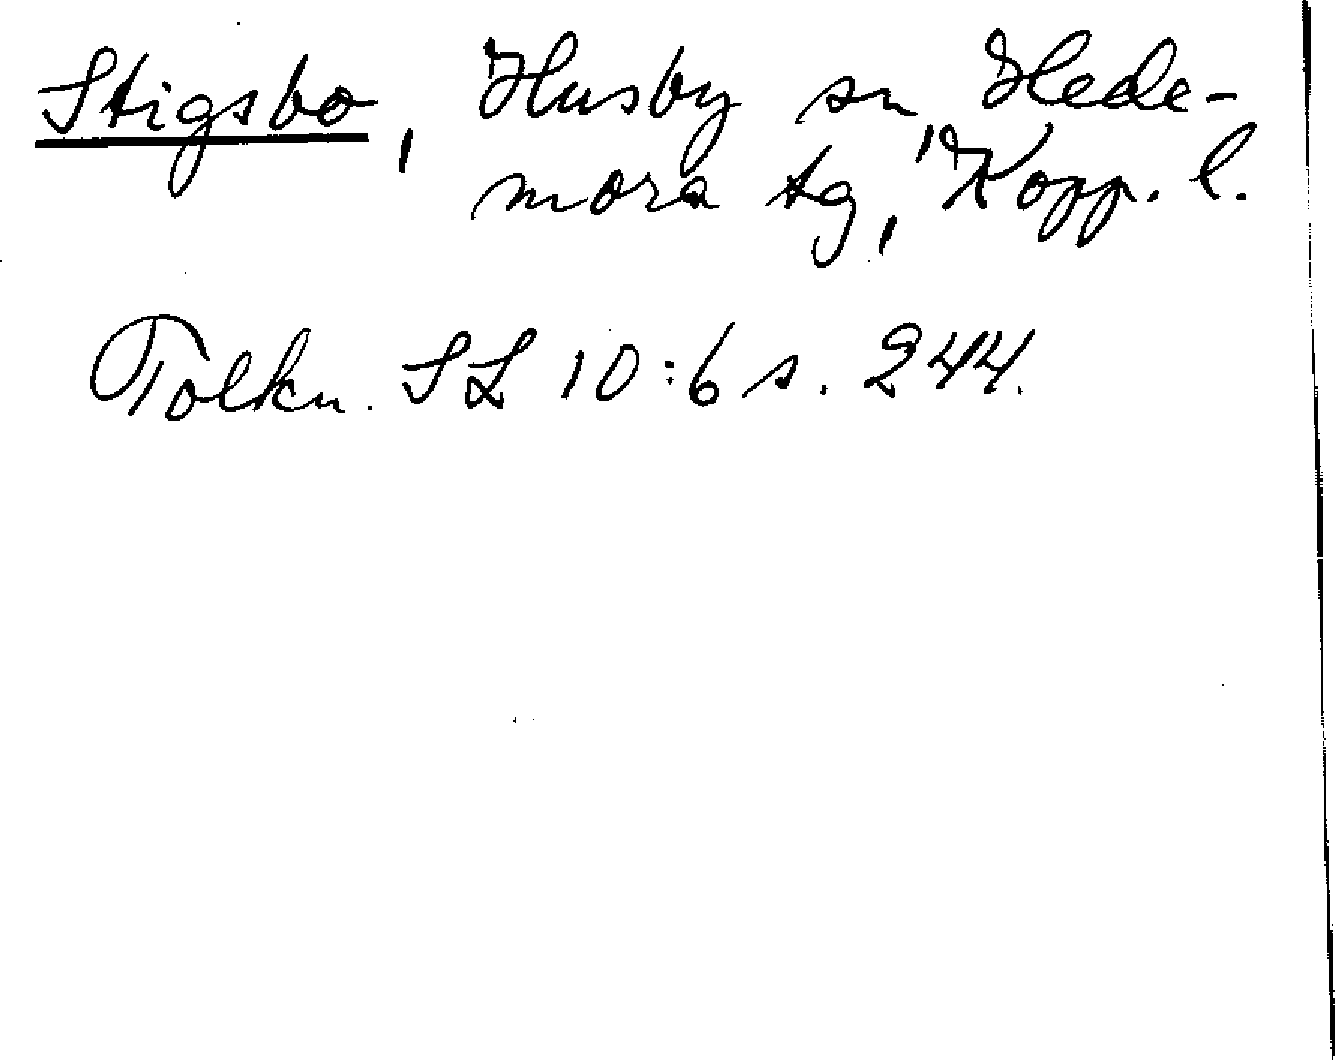 Stigsbo, Husby sn, Hede-
mora tg, Kopp. l.
Tolkn. SL 10:6 s. 244.